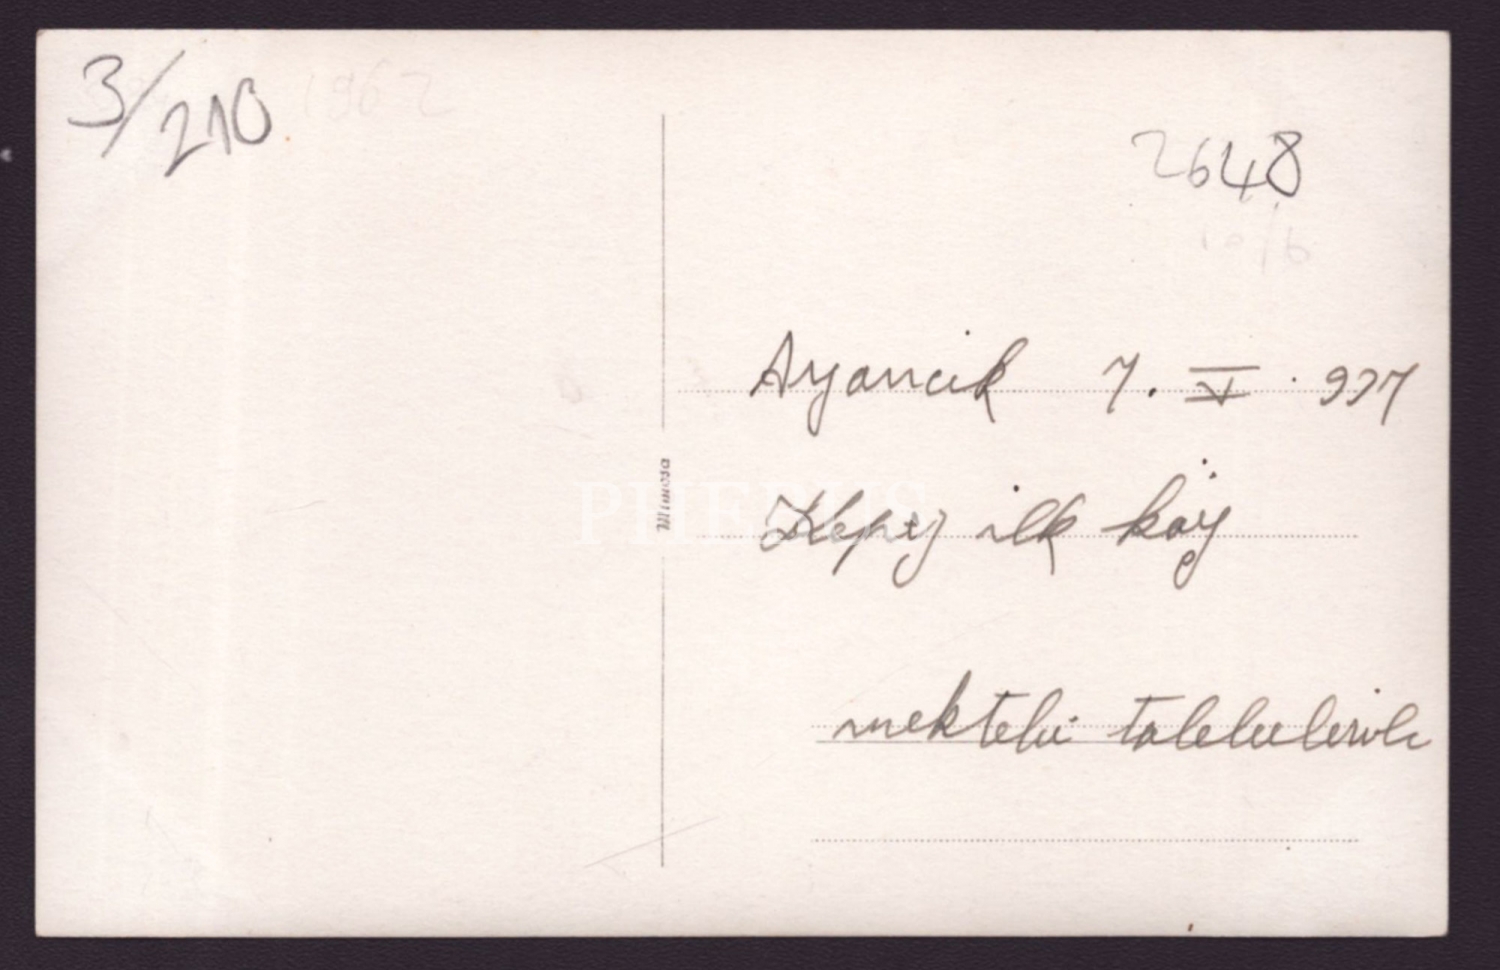 3/210 1962
2648
10/6
Ayancık 7. V. 937
Mimosa
PHEBUS
ilk köy
mektebi talebelerile